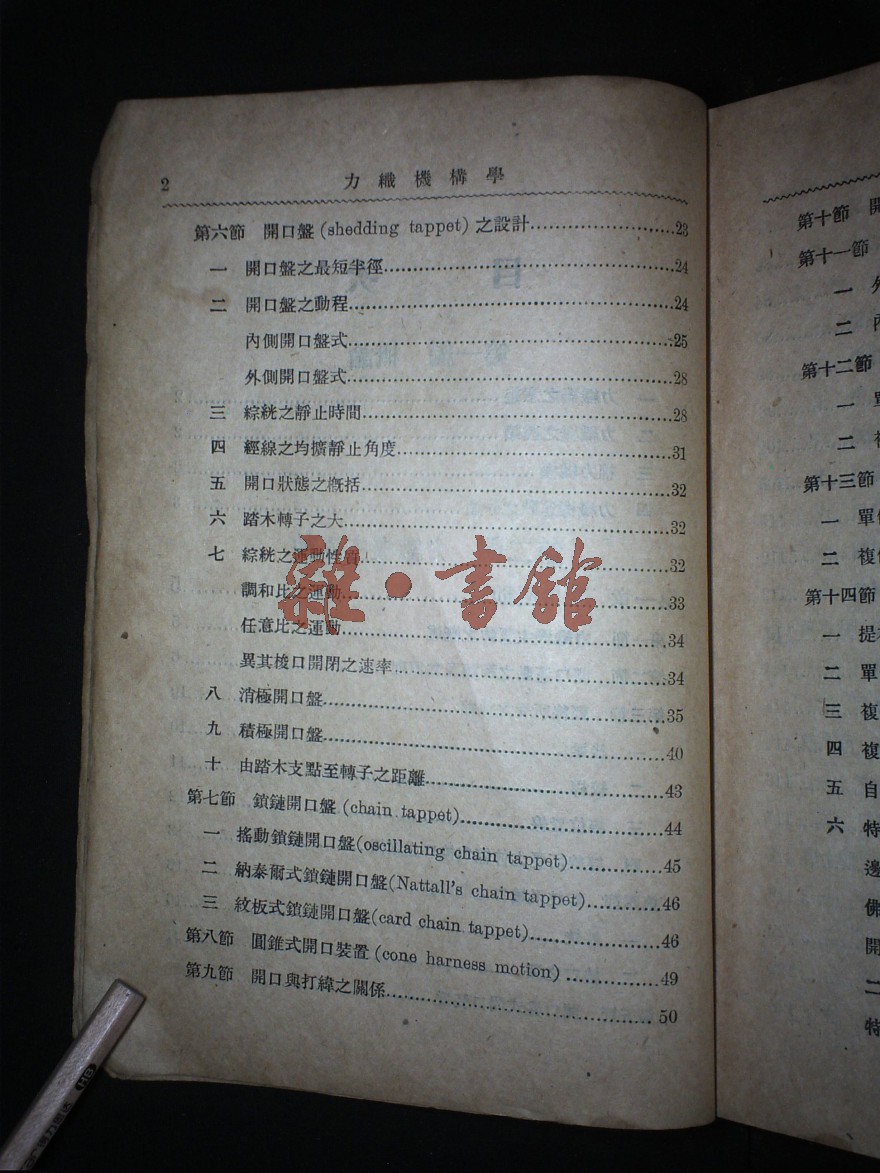 2
力織機構學
第六節 開口盤(shedding tappet)之設計……………………23
一 開口盤之最短半徑……………………24
二 開口盤之動程……………………24
內側開口盤式……………………25
外側開口盤式……………………28
三 綜絖之靜止時間……………………28
四 經線之均擴靜止角度……………………31
五 開口狀態之概括……………………32
六 踏木轉子之大……………………32
七 綜絖之運動性質……………………32
調和比之運動……………………33
任意比之運動……………………34
異其梭口開閉之速率……………………34
八 消極開口盤……………………35
九 積極開口盤……………………40
十 由踏木支點至轉子之距離……………………43
第七節 鎖鏈開口盤(chain tappet)……………………44
一 搖動鎖鏈開口盤(oscillating chain tappet)……………45
二 納泰爾式鎖鏈開口盤(Nattall's chain tappet)…………46
三 紋板式鎖鏈開口盤(card chain tappet)……………46
第八節 圓錐式開口裝置(cone harness motion)……………49
第九節 開口與打緯之關係……………………50
雜·書館
HB
第十節
第十一節
一 外
二 內
第十二節
一 單
二 複
第十三節
一 單
二 複
第十四節
一 提
二 單
三 複
四 複
五 自
六 特
邊
佛
開
二
特